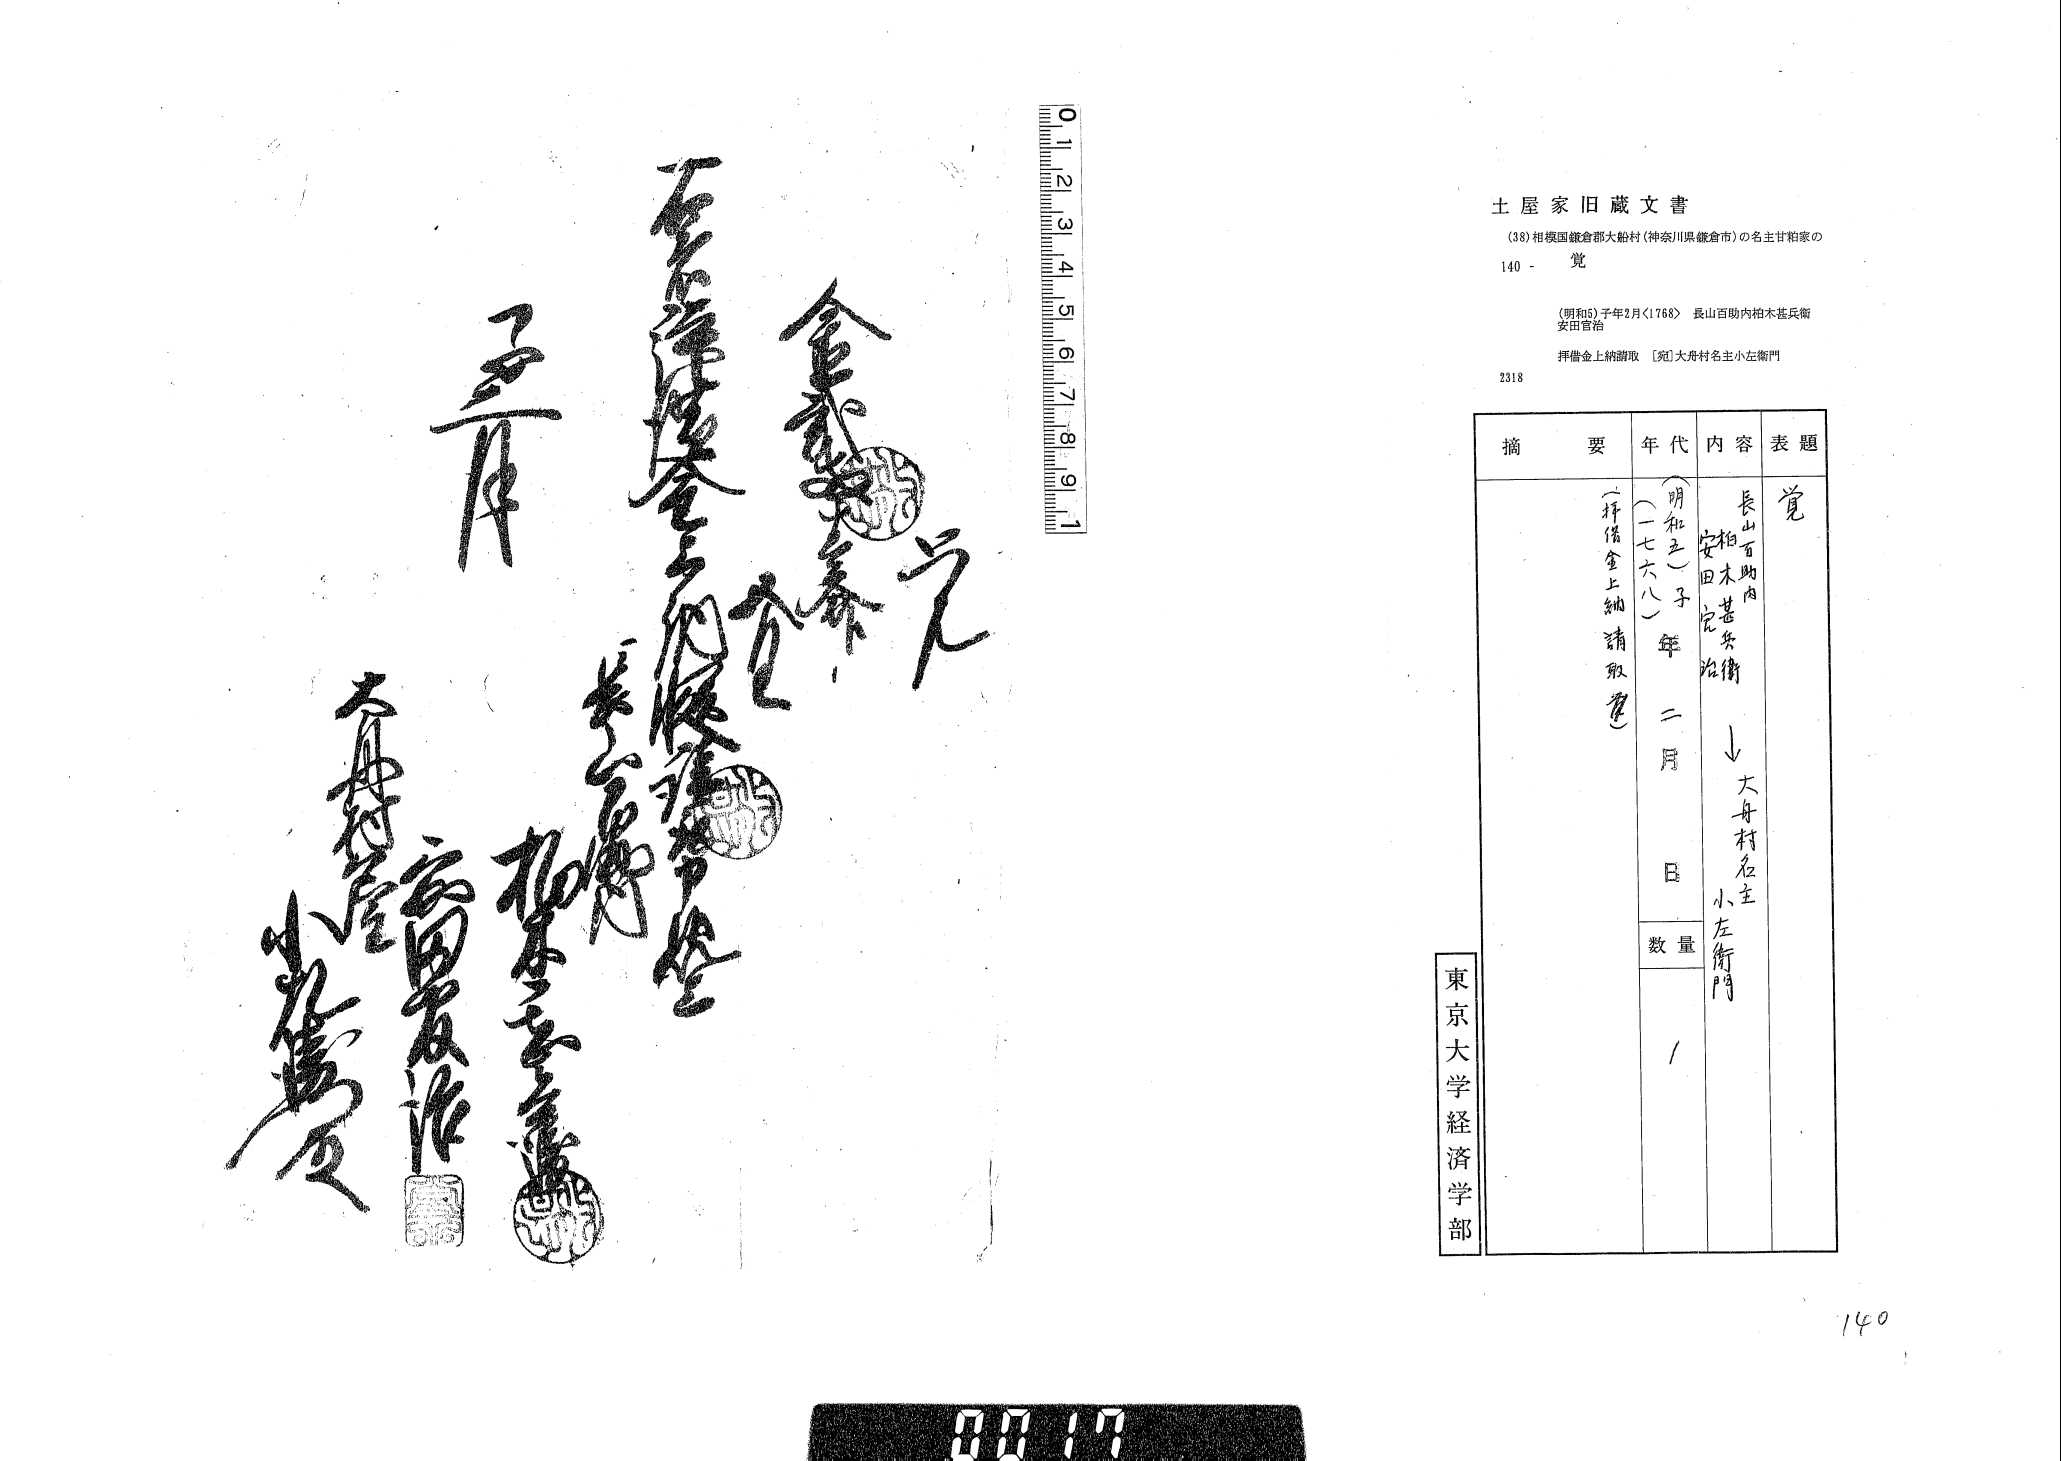 土屋家旧蔵文書
(38)相模国鎌倉郡大船村(神奈川県鎌倉市)の名主甘粕家の
140 - 覚
(明和5)子年2月<1768> 長山百助内柏木甚兵衛
安田官治
拝借金上納請取 [宛]大舟村名主小左衛門
2318
表題
覚
内容
長山百助内
柏木甚兵衛
安田官治
↓
大舟村名主
小左衛門
年代
(明和五)子年二月日
(一七六八)
数量
1
摘要
(拝借金上納請取覚)
東京大学経済学部
140
0 1 2 3 4 5 6 7 8 9 1
覚
金弐
拝借金上納
子二月
長山百助内
柏木甚兵衛
安田官治
大舟村名主
小左衛門
0017